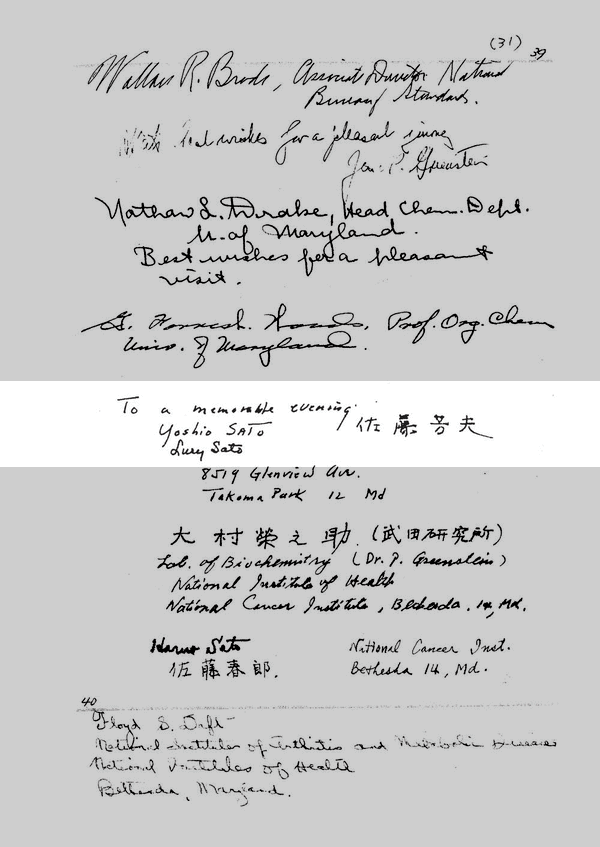 (31)
39
Wallace R. Brode, Associate Director National
Bureau of Standards.
With best wishes for a pleasant journey
Jesse P. Greenstein
Nathan L. Drake, Head Chem. Dept.
U. of Maryland.
Best wishes for a pleasant
visit.
G. Forrest Woods, Prof. Org. Chem
Univ. of Maryland.
To a memorable evening
Yoshio SATO 佐藤芳夫
Lucy Sato
8519 Glenview Av.
Takoma Park 12 Md
大村榮之助 (武田研究所)
Lab. of Biochemistry (Dr. J. Greenstein)
National Institute of Health
National Cancer Institute, Bethesda. 14, Md.
Haruo Sato National Cancer Inst.
佐藤春郎. Bethesda 14, Md.
40
Floyd S. Daft
National Institutes of Arthritis and Metabolic Diseases
National Institutes of Health
Bethesda, Maryland.